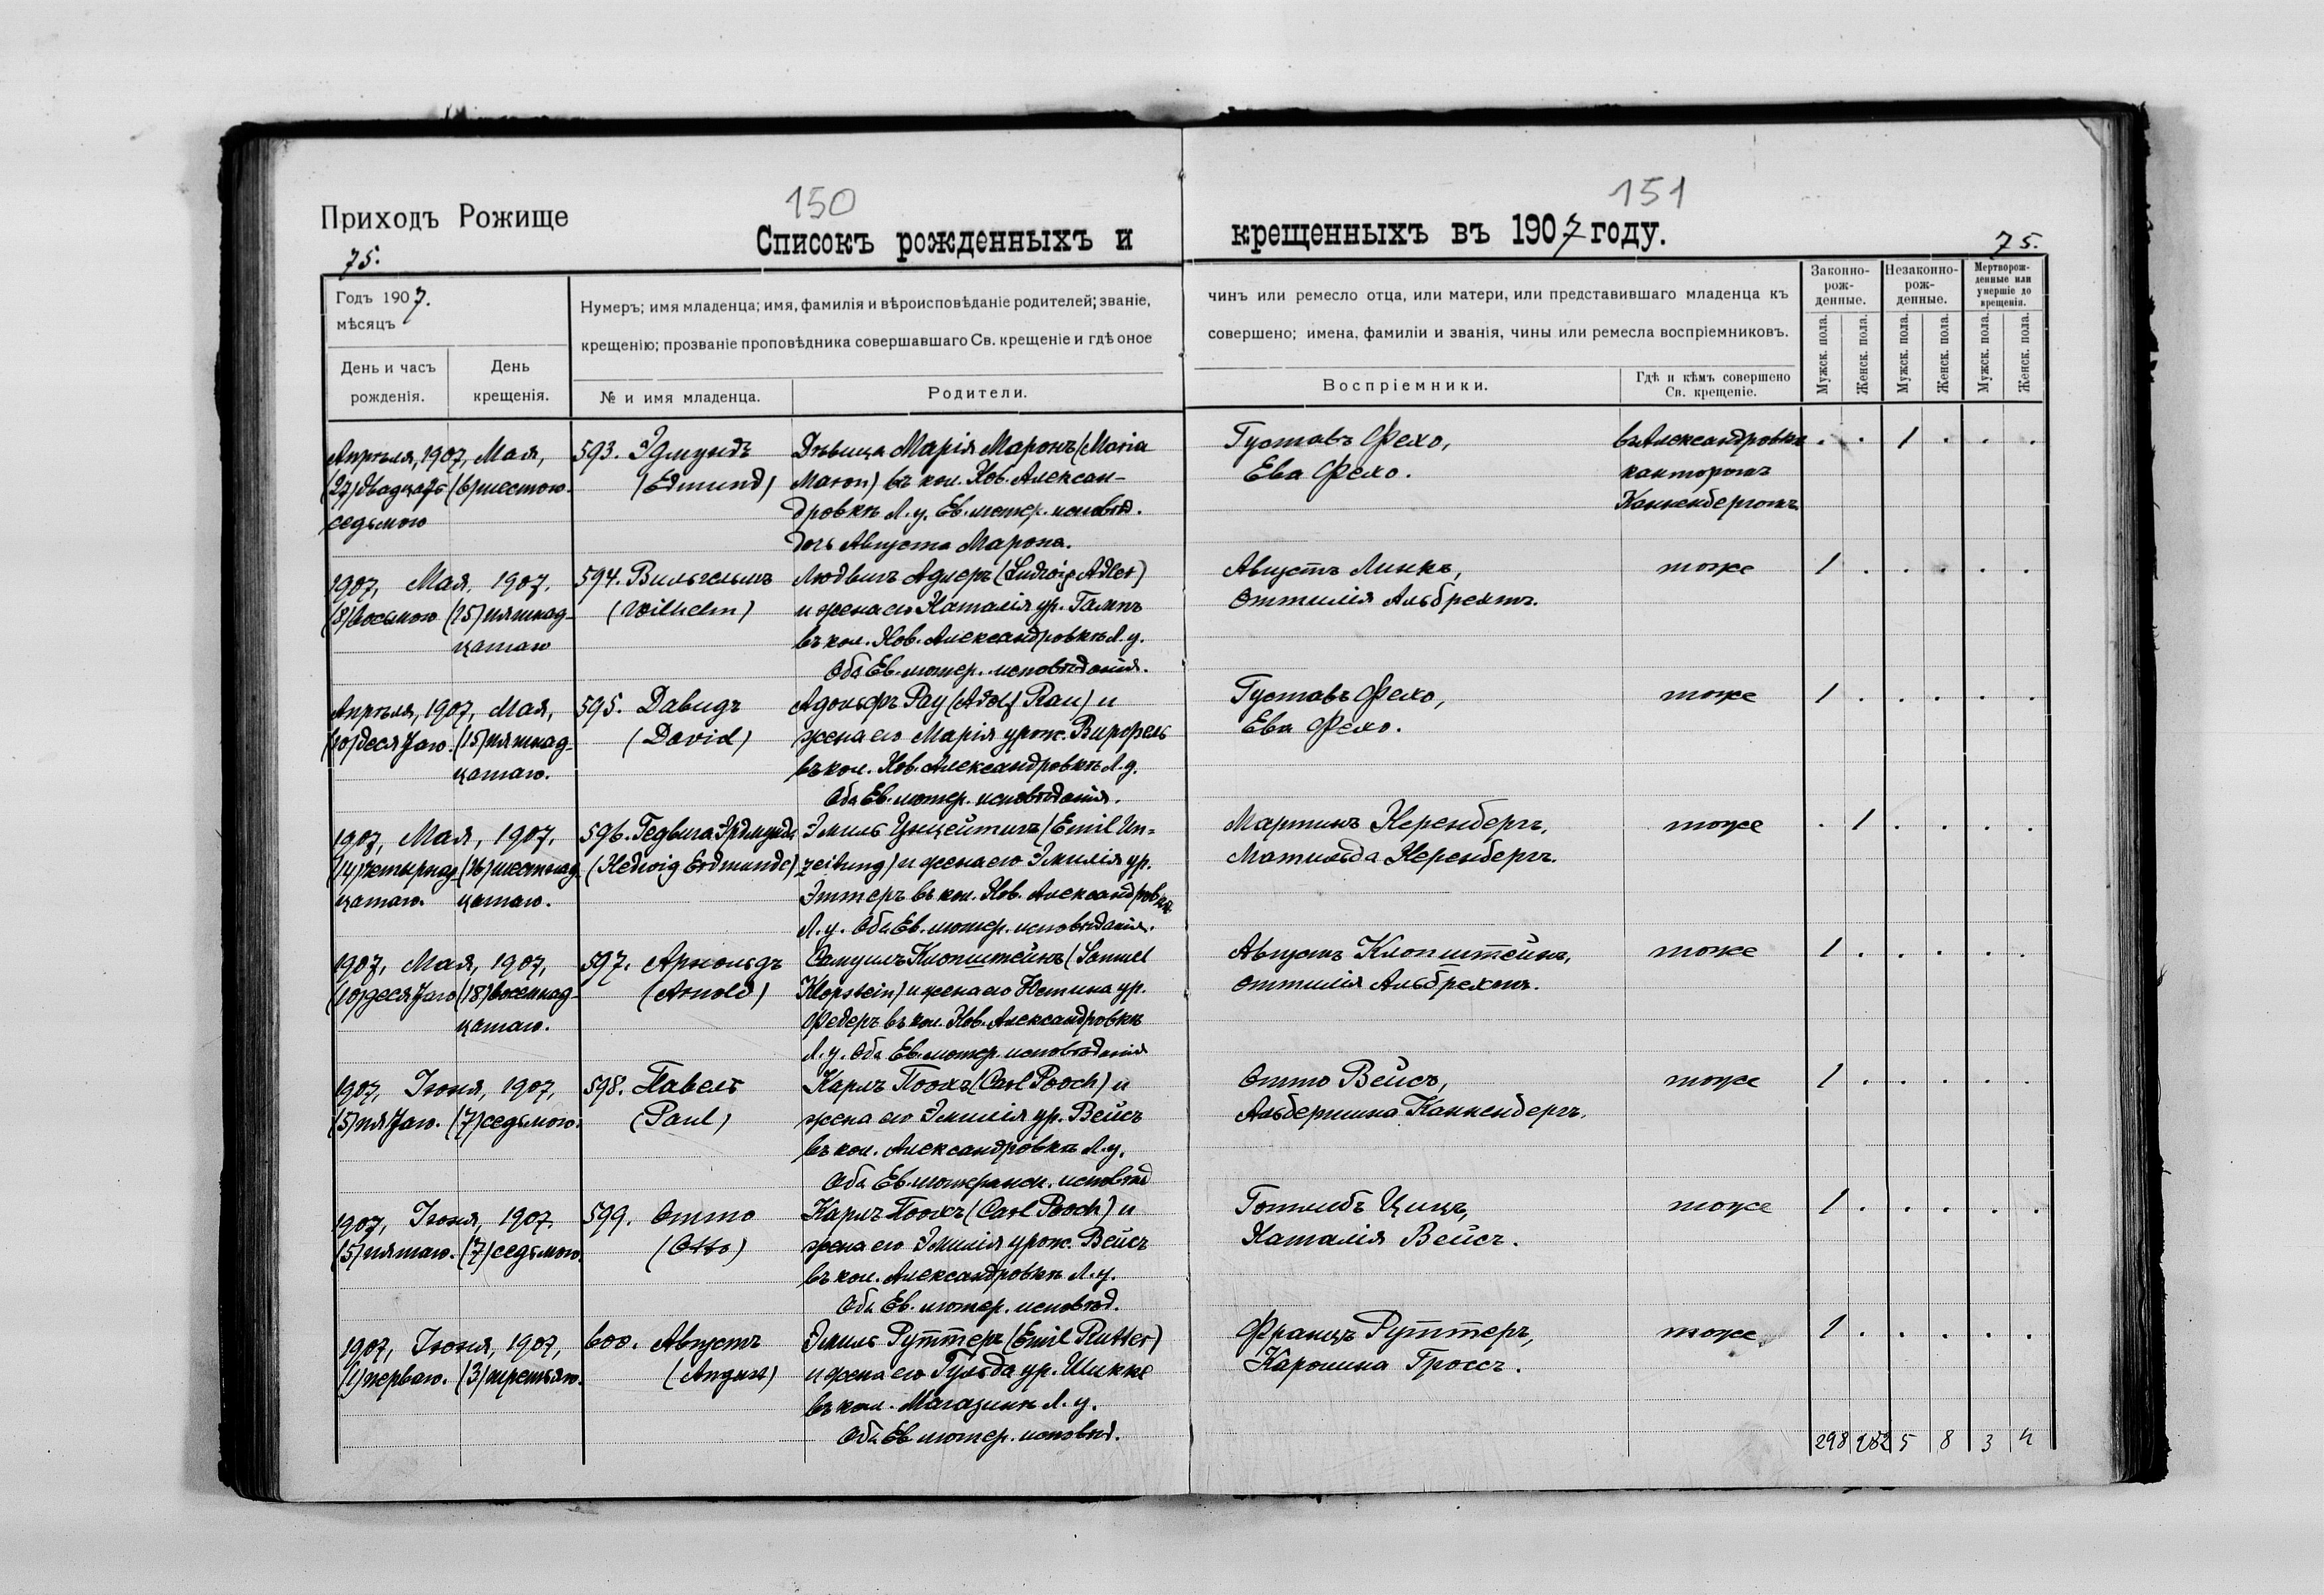 150
151
Приходъ Рожище
Списокъ рожденныхъ и
крещенныхъ въ 1907 году.
75.
75.
Годъ 1907.
мѣсяцъ
День и часъ
рожденія.
День
крещенія.
Нумеръ; имя младенца; имя, фамилія и вѣроисповѣданіе родителей; званіе,
крещенію; прозваніе проповѣдника совершавшаго Св. крещеніе и гдѣ оное
№ и имя младенца.
Родители.
чинъ или ремесло отца, или матери, или представившаго младенца къ
совершено; имена, фамиліи и званія, чины или ремесла воспріемниковъ.
Воспріемники.
Гдѣ и кѣмъ совершено
Св. крещеніе.
Законно-
рож-
денные.
Незаконно-
рож-
денные.
Мертворож-
денные или
умершіе до
крещенія.
Мужск. пола.
Женск. пола.
Мужск. пола.
Женск. пола.
Мужск. пола.
Женск. пола.
Апрѣля, 1907, Мая,
(27) двадцать (6) шестого
седьмого
593. Эдмундъ
(Edmund)
Дѣвица Марія Маронъ (Maria
Maron) въ кол. Нов. Алексан-
дровкѣ Л. у. Ев. лютер. исповѣд.
дочь Августа Марона.
Густавъ Фехо,
Ева Фехо.
въ Александровкѣ
канторомъ
Канненбергомъ
. . 1 . . .
1907, Мая, 1907.
(8) восьмого (15) пятнад-
цатаго
594. Вильгельмъ
(Wilhelm)
Людвигъ Адлеръ (Ludwig Adler)
и жена его Наталія ур. Гампъ
въ кол. Нов. Александровкѣ Л. у.
Оба Ев. лютер. исповѣданія.
Августъ Линкъ,
Оттилія Альбрехтъ.
тоже
1 . . . . .
Апрѣля, 1907, Мая,
(10) десятаго (15) пятнад-
цатаго.
595. Давидъ
(David)
Адольфъ Рау (Adolf Rau) и
жена его Марія урож. Вирфель
въ кол. Нов. Александровкѣ Л. у.
Оба Ев. лютер. исповѣданія.
Густавъ Фехо,
Ева Фехо.
тоже
1 . . . . .
1907, Мая, 1907.
(14) четырнад- (16) шестнад-
цатаго. цатаго.
596. Гедвига Эрдмунда
(Hedwig Erdmunde)
Эмиль Унцейтигъ (Emil Un-
zeitung) и жена его Эмилія ур.
Эттеръ въ кол. Нов. Александровкѣ
Л. у. Оба Ев. лютер. исповѣданія.
Мартинъ Керенбергъ,
Матильда Керенбергъ.
тоже
. 1 . . . .
1907, Мая, 1907,
(10) десятаго (18) восемнад-
цатаго.
597. Арнольдъ
(Arnold)
Самуилъ Клопштейнъ (Samuel
Klopstein) и жена его Юстина ур.
Федеръ въ кол. Нов. Александровкѣ
Л. у. Оба Ев. лютер. исповѣданія
Августъ Клопштейнъ,
Оттилія Альбрехтъ.
тоже
1 . . . . .
1907, Іюня, 1907,
(5) пятаго. (7) седьмого.
598. Павелъ
(Paul)
Карлъ Поохъ (Carl Pooch) и
жена его Эмилія ур. Вейсъ
въ кол. Александровкѣ Л. у.
Оба Ев. лютеранск. исповѣд
Отто Вейсъ,
Альбертина Канненбергъ.
тоже
1 . . . . .
1907, Іюня, 1907.
(5) пятаго. (7) седьмого.
599. Отто
(Otto)
Карлъ Поохъ (Carl Pooch) и
жена его Эмилія урож. Вейсъ
въ кол. Александровкѣ Л. у.
Оба Ев. лютер. исповѣд.
Готлибъ Цицъ,
Наталія Вейсъ.
тоже
1 . . . . .
1907, Іюня, 1907,
(1) перваго. (3) третьяго.
600. Августъ
(August)
Эмиль Руттеръ (Emil Rutter)
и жена его Гульда ур. Шикке
въ кол. Магазинѣ Л. у.
Оба Ев. лютер. исповѣд.
Францъ Руттеръ,
Каролина Гроссъ.
тоже
1 . . . . .
298 282 5 8 3 4